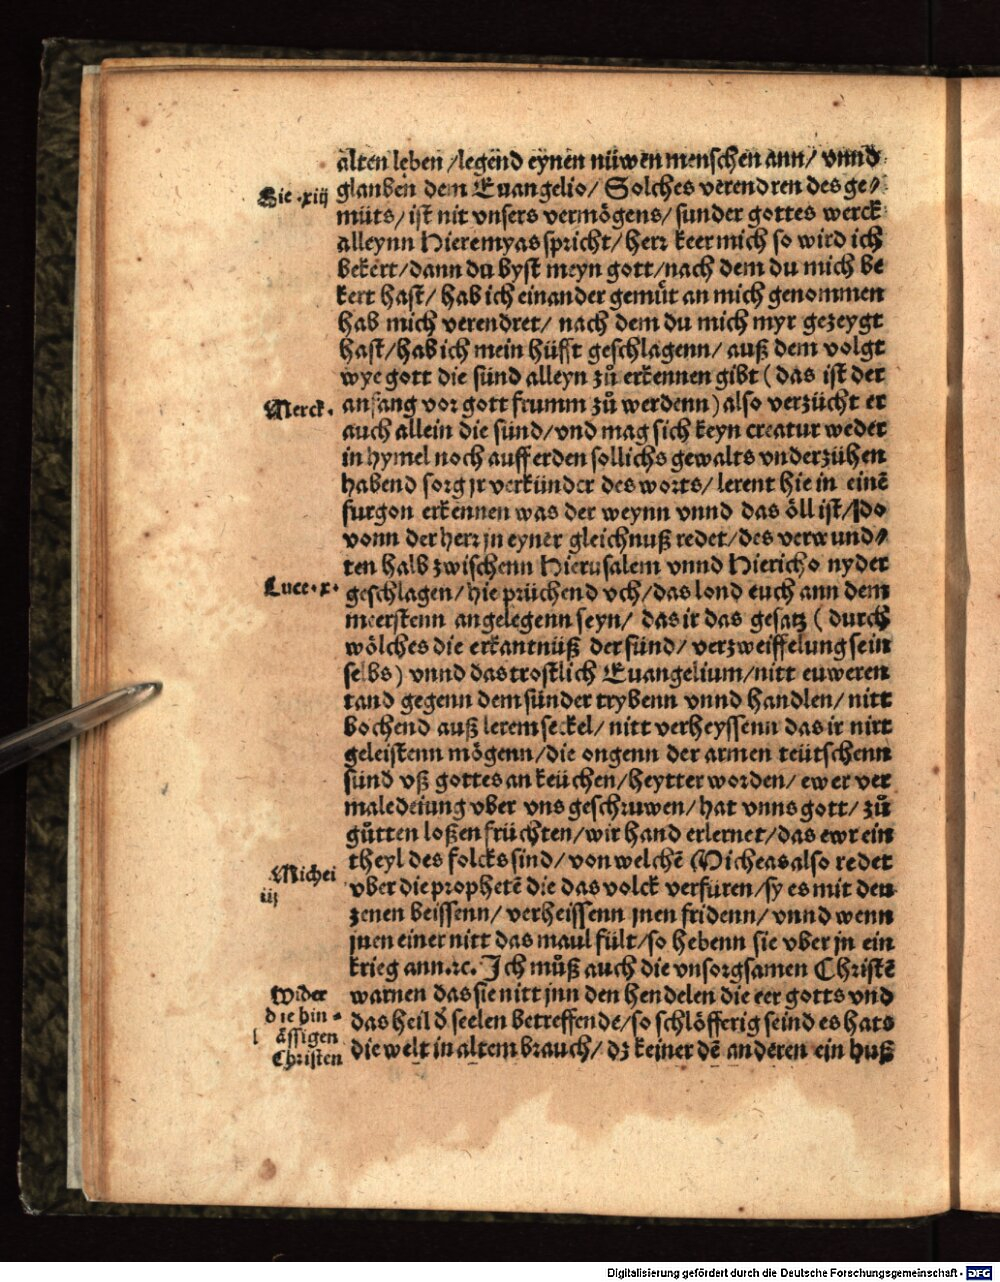 alten leben /legend eynen nüwen menschen ann/ vnnd
glauben dem Euangelio/ Solches verendren des ge⸗
müts/ ist nit vnsers vermögens/ sunder gottes werck
alleynn Hieremyas spricht/ herr keer mich so wird ich
bekert/dann du byst meyn gott/nach dem du mich be
kert hast/ hab ich ein ander gemüt an mich genommen
hab mich verendret/ nach dem du mich myr gezeygt
hast/hab ich mein hüfft geschlagenn/ auß dem volgt
wye gott die sünd alleyn zů erkennen gibt ( das ist der
anfang vor gott frumm zů werdenn) also verzücht er
auch allein die sünd/vnd mag sich keyn creatur weder
in hymel noch auff erden sollichs gewalts vnderzühen
habend sorg jr verkünder des worts/ lerent hie in einē
furgon erkennen was der weynn vnnd das öll ist/ do
vonn der herr jn eyner gleichnuß redet/des verwund⸗
ten halb zwischenn Hierusalem vnnd Hiericho nyder
geschlagen/ hie prüchend vch/das lond euch ann dem
meerstenn angelegenn seyn/ das ir das gesatz ( durch
wölches die erkantnüß der sünd/ verzweiffelung sein
selbs) vnnd das trostlich Euangelium/nitt euweren
tand gegenn dem sünder trybenn vnnd handlen/ nitt
bochend auß lerem seckel/ nitt verheyssenn das ir nitt
geleistenn mögenn/die ongenn der armen teütschenn
sünd vß gottes an keüchen/heytter worden/ ewer ver
maledeiung vber vns geschruwen/hat vnns gott/ zů
gůtten loßen früchten/wir hand erlernet/das ewr ein
theyl des folcks sind/ von welchē Micheas also redet
vber die prophetē die das volck verfüren/sy es mit den
zenen beissenn/ verheissenn jnen fridenn/ vnnd wenn
jnen einer nitt das maul fült/so hebenn sie vber jn ein
krieg ann.ꝛc. Ich můß auch die vnsorgsamen Christē
warnen das sie nitt jnn den hendelen die eer gotts vnd
das heil d̄ seelen betreffende/so schlöfferig seind es hats
die welt in altem brauch/ dz keiner dē anderen ein huß
Hie .xiij
Merck.
Luce.x.
Michei
iij
Wider
die hin⸗
lässigen
Christen
Digitalisierung gefördert durch die Deutsche Forschungsgemeinschaft - DFG